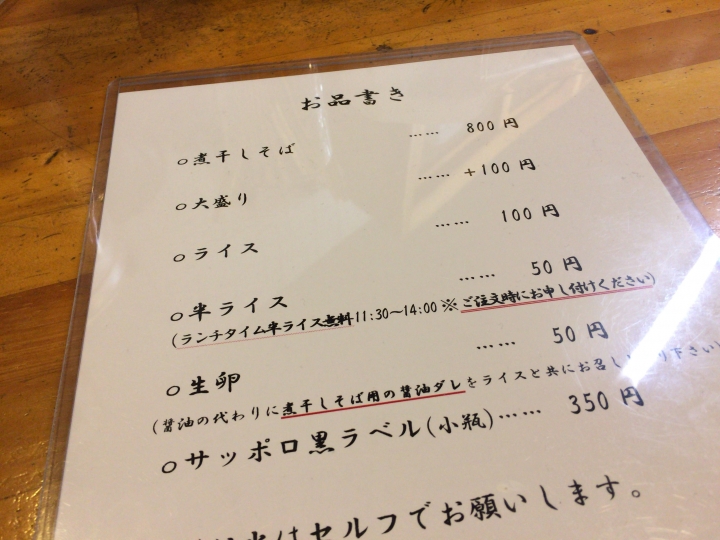 お品書き
○煮干しそば …… 800円
○大盛り …… +100円
○ライス …… 100円
○半ライス …… 50円
(ランチタイム半ライス無料11:30~14:00※ご注文時にお申し付けください)
○生卵 …… 50円
(醤油の代わりに煮干しそば用の醤油ダレをライスと共にお召し 下さい
○サッポロ黒ラベル(小瓶)…… 350円
はセルフでお願いします。